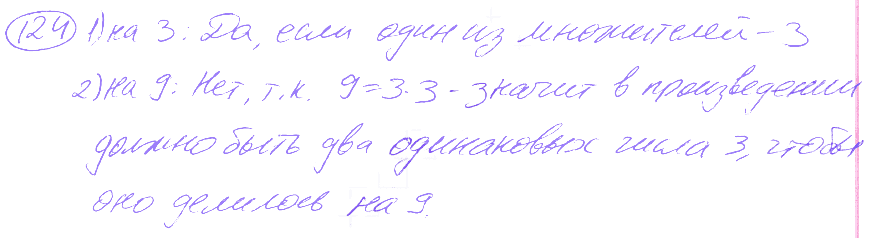 124 1) на 3: Да, если один из множителей – 3
2) на 9: Нет, т.к. 9=3·3 - значит в произведении
должно быть два одинаковых числа 3, чтобы
оно делилось на 9.